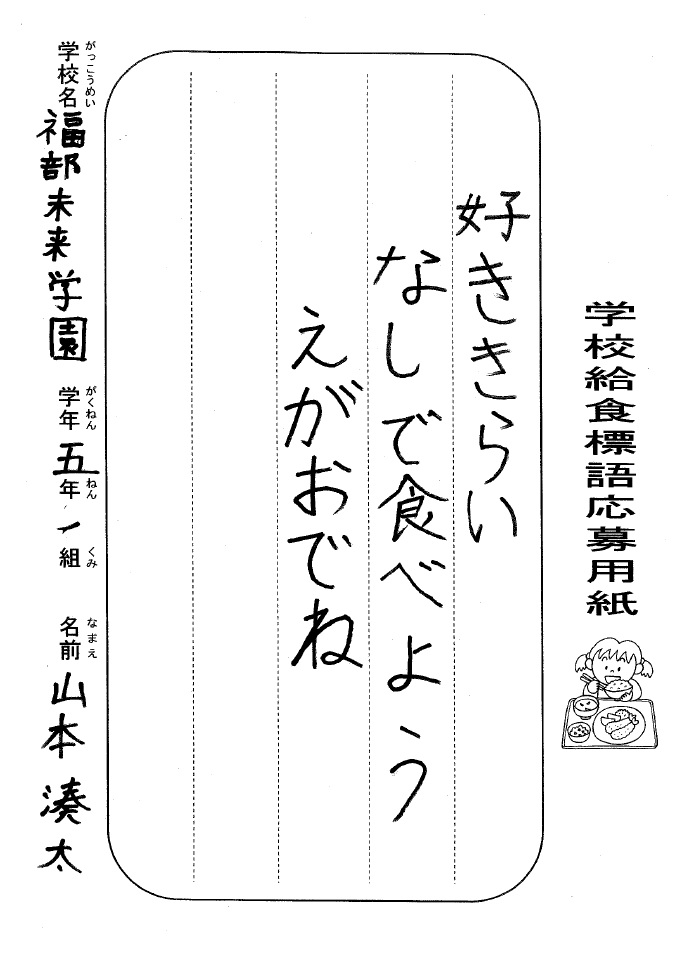 学校給食標語応募用紙
好ききらい
なしで食べよう
えがおでね
学校名 福部未来学園 学年 五年 一組 名前 山本湊太
がっこうめい がくねん ねん くみ なまえ